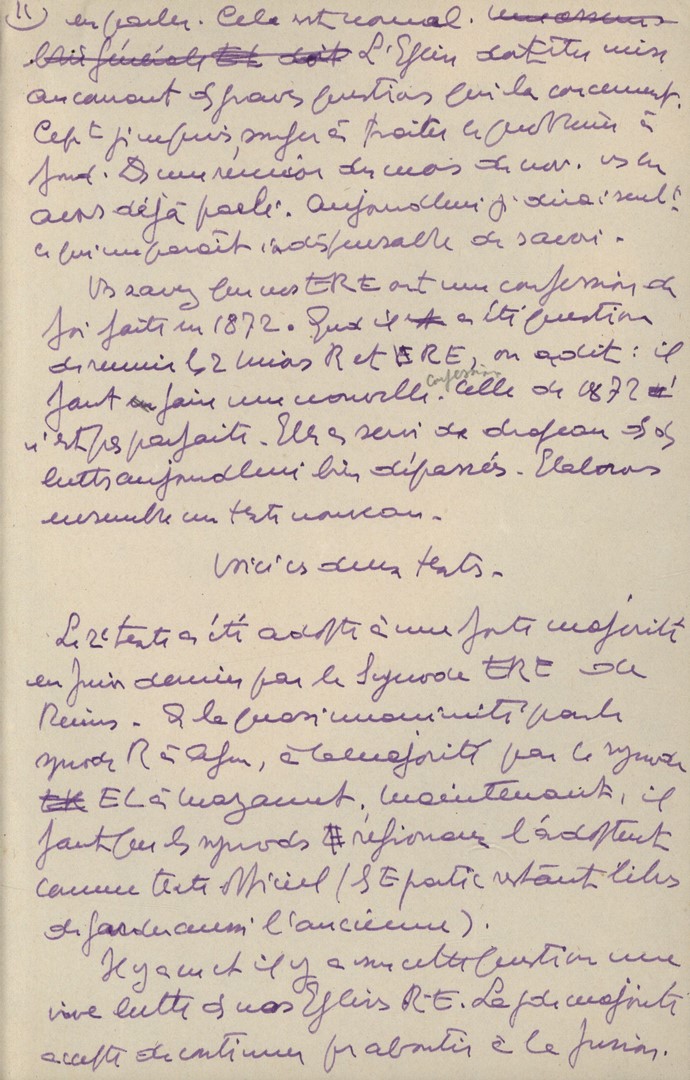 11) en parler. Cela est normal.
L'Eglise doit être mise
au courant des graves questions qui la concernent.
Cep^t je ne puis songer à traiter ce problème à
fond. Ds une réunion du mois de nov. vs en
avons déjà parlé. Aujourdhui je dirai seul^t
ce qui me parait indispensable de savoir.
Vs savez que nos ERE ont une confession de
foi faite en 1872. Qud il a été question
de reunir les 2 unions R et ERE, on a dit : il
faut faire une nouvelle confession. Celle de 1872
n'est pas parfaite. Elle a servi de drapeau ds ds
luttes aujourdhui bien dépassées. Elaborons
ensemble un texte nouveau.
Voici ces deux textes.
Le 2e texte a été adopté à une forte majorité
en Juin dernier par le Synode ERE de
Reims. A la quasi unanimité par le
synode R à Agen, à la majorité par le synode
EL à Mazamet. Maintenant, il
faut que les synodes régionaux l'adoptent
comme texte officiel (les E partic restant libres
de garder aussi l'ancienne).
Il y a eu et il y a sur cette question une
vive lutte ds nos Eglises R.E. La gde majorité
accepte de continuer pr aboutir à la fusion.